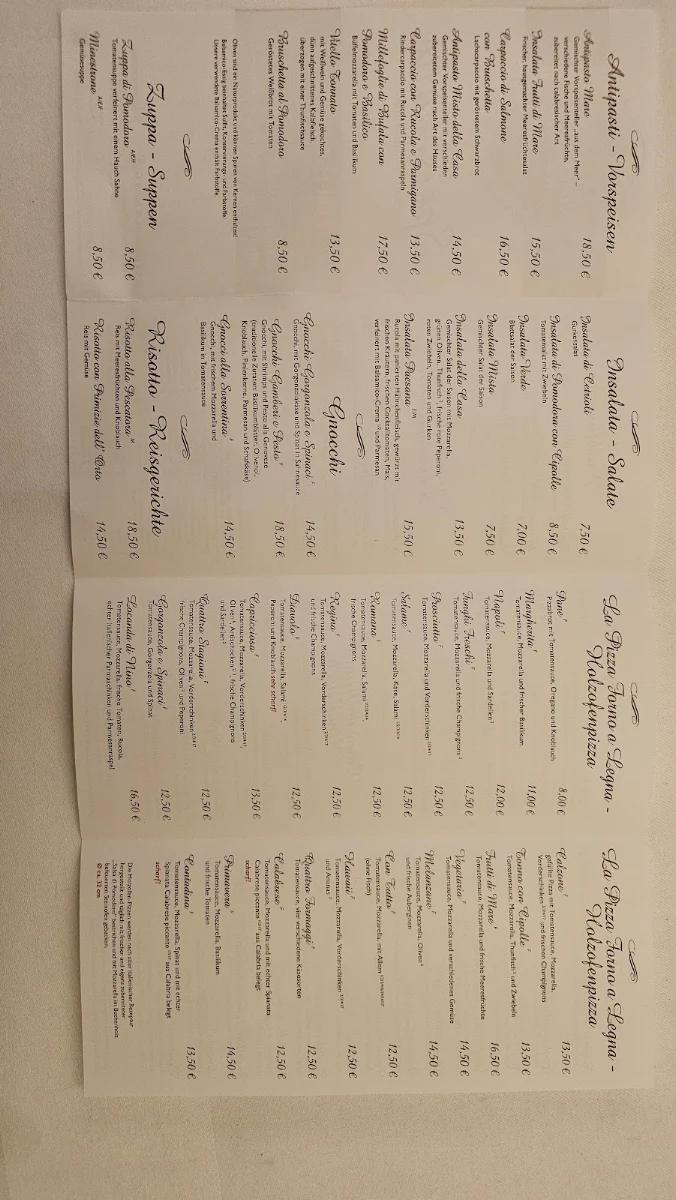 Antipasti - Vorspeisen
Antipasto Mare 18,50 €
Gemischter Vorspeisenteller „aus dem Meer“ –
verschiedene Fische und Meeresfrüchte,
zubereitet nach calabresischer Art
Insalata Frutti di Mare 15,50 €
Frischer, hausgemachter Meeresfrüchtesalat
Carpaccio di Salmone 16,50 €
con Bruschetta
Lachscarpaccio mit geröstetem Schwarzbrot
Antipasto Misto della Casa 14,50 €
Gemischter Vorspeisenteller mit verschieden
zubereitetem Gemüse nach Art des Hauses
Carpaccio con Rucola e Parmigiano 13,50 €
Rindercarpaccio mit Rucola und Parmesanraspeln
Millefoglie di Bufala con 17,50 €
Pomodoro e Basilico
Büffelmozzarella mit Tomaten und Basilikum
Vitello Tonnato 13,50 €
mit Weißwein und Gemüse gekochtes,
dünn aufgeschnittenes Kalbfleisch,
überzogen mit einer Thunfischsauce
Bruschetta al Pomodoro 8,50 €
Geröstetes Weißbrot mit Tomaten
Oliven sind ein Naturprodukt und können Spuren von Kernen enthalten!
Balsamico-Essig beinhaltet Sulfit, Konservierungs- und Farbstoffe.
Unsere verwendete Balsamico-Crema enthält Farbstoffe.
Zuppa - Suppen
Zuppa di Pomodoro 8,50 €
Tomatensuppe verfeinert mit einem Hauch Sahne
Minestrone 8,50 €
Gemüsesuppe
Insalata - Salate
Insalata di Cetrioli 7,50 €
Gurkensalat
Insalata di Pomodoro con Cipolle 8,50 €
Tomatensalat mit Zwiebeln
Insalata Verde 7,00 €
Blattsalat der Saison
Insalata Mista 7,50 €
Gemischter Salat der Saison
Insalata della Casa 13,50 €
Gemischter Salat der Saison mit Mozzarella,
grünen Oliven, Thunfisch, frische rote Peperoni,
roten Zwiebeln, Tomaten und Gurken
Insalata Toscana 15,50 €
Rucola mit panierten Hähnchenfleisch, gewürzt mit
frischen Kräutern, frischen Cocktailtomaten, Mais,
verfeinert mit Balsamico-Crema und Parmesan
Gnocchi
Gnocchi Gorgonzola e Spinaci 14,50 €
Gnocchi, mit Gorgonzolakäse und Spinat in Sahnesauce
Gnocchi Gamberi e Pesto 18,50 €
Gnocchi, mit Shrimps und Pesto alla Genovese
(traditionelle Zutaten: Basilikumblätter, Olivenöl,
Knoblauch, Pinienkerne, Parmesan und Schafskäse)
Gnocci alla Sorrentina 14,50 €
Gnocchi, mit frischem Mozzarella und
Basilikum in Tomatensauce
Risotto - Reisgerichte
Risotto alla Pescatora 18,50 €
Reis mit Meeresfrüchten und Knoblauch
Risotto con Primizie dell' Orto 14,50 €
Reis mit Gemüse
La Pizza Forno a Legna -
Holzofenpizza
Pane 8,00 €
Pizzabrot mit Tomatensauce, Oregano und Knoblauch
Margherita 11,00 €
Tomatensauce, Mozzarella und frischer Basilikum
Napoli 12,00 €
Tomatensauce, Mozzarella und Sardellen
Funghi Freschi 12,50 €
Tomatensauce, Mozzarella und frische Champignons
Prosciutto 12,50 €
Tomatensauce, Mozzarella und Vorderschinken
Salame 12,50 €
Tomatensauce, Mozzarella, Käse, Salami
Romana 12,50 €
Tomatensauce, Mozzarella, Salami
frische Champignons
Regina 12,50 €
Tomatensauce, Mozzarella, Vorderschinken
und frische Champignons
Diavolo 12,50 €
Tomatensauce, Mozzarella, Salami
Peperoni und Knoblauch sehr scharf!
Capricciosa 13,50 €
Tomatensauce, Mozzarella, Vorderschinken,
Oliven, Artischocken, frische Champignons
und Sardellen
Quattro Stagioni 12,50 €
Tomatensauce, Mozzarella, Vorderschinken
frische Champignons, Oliven und Peperoni
Gorgonzola e Spinaci 12,50 €
Tomatensauce, Gorgonzola und Spinat
Locanda di Nino 16,50 €
Tomatensauce, Mozzarella, frische Tomaten, Rucola,
echter italienischer Parmaschinken und Parmesanraspel
La Pizza Forno a Legna -
Holzofenpizza
Calzone 13,50 €
gefüllte Pizza mit Tomatensauce, Mozzarella,
Vorderschinken und frischen Champignons
Tonno con Cipolle 13,50 €
Tomatensauce, Mozzarella, Thunfisch und Zwiebeln
Frutti di Mare 16,50 €
Tomatensauce, Mozzarella und frische Meeresfrüchte
Vegetaria 14,50 €
Tomatensauce, Mozzarella und verschiedenes Gemüse
Melanzane 14,50 €
Tomatensauce, Mozzarella, Oliven
und frische Auberginen
Con Tutto 12,50 €
Tomatensauce, Mozzarella, mit Allem
(ohne Fisch)
Hawaii 12,50 €
Tomatensauce, Mozzarella, Vorderschinken
und Ananas
Quattro Formaggi 12,50 €
Tomatensauce, vier verschiedene Käsesorten
Calabrese 12,50 €
Tomatensauce, Mozzarella und mit echter Spianata
Calabrese piccante aus Calabria belegt
scharf!
Primavera 14,50 €
Tomatensauce, Mozzarella, Basilikum
und frische Tomaten
Contadino 13,50 €
Tomatensauce, Mozzarella, Spinat und mit echter
Spianata Calabrese piccante aus Calabria belegt
scharf!